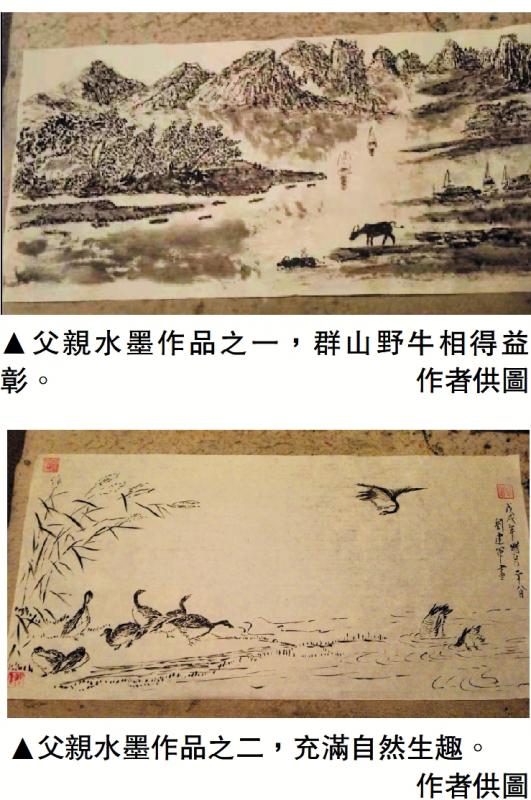 ▲父親水墨作品之一，群山野牛相得益
彰。 作者供圖
戊戌年
▲父親水墨作品之二，充滿自然生趣。
作者供圖